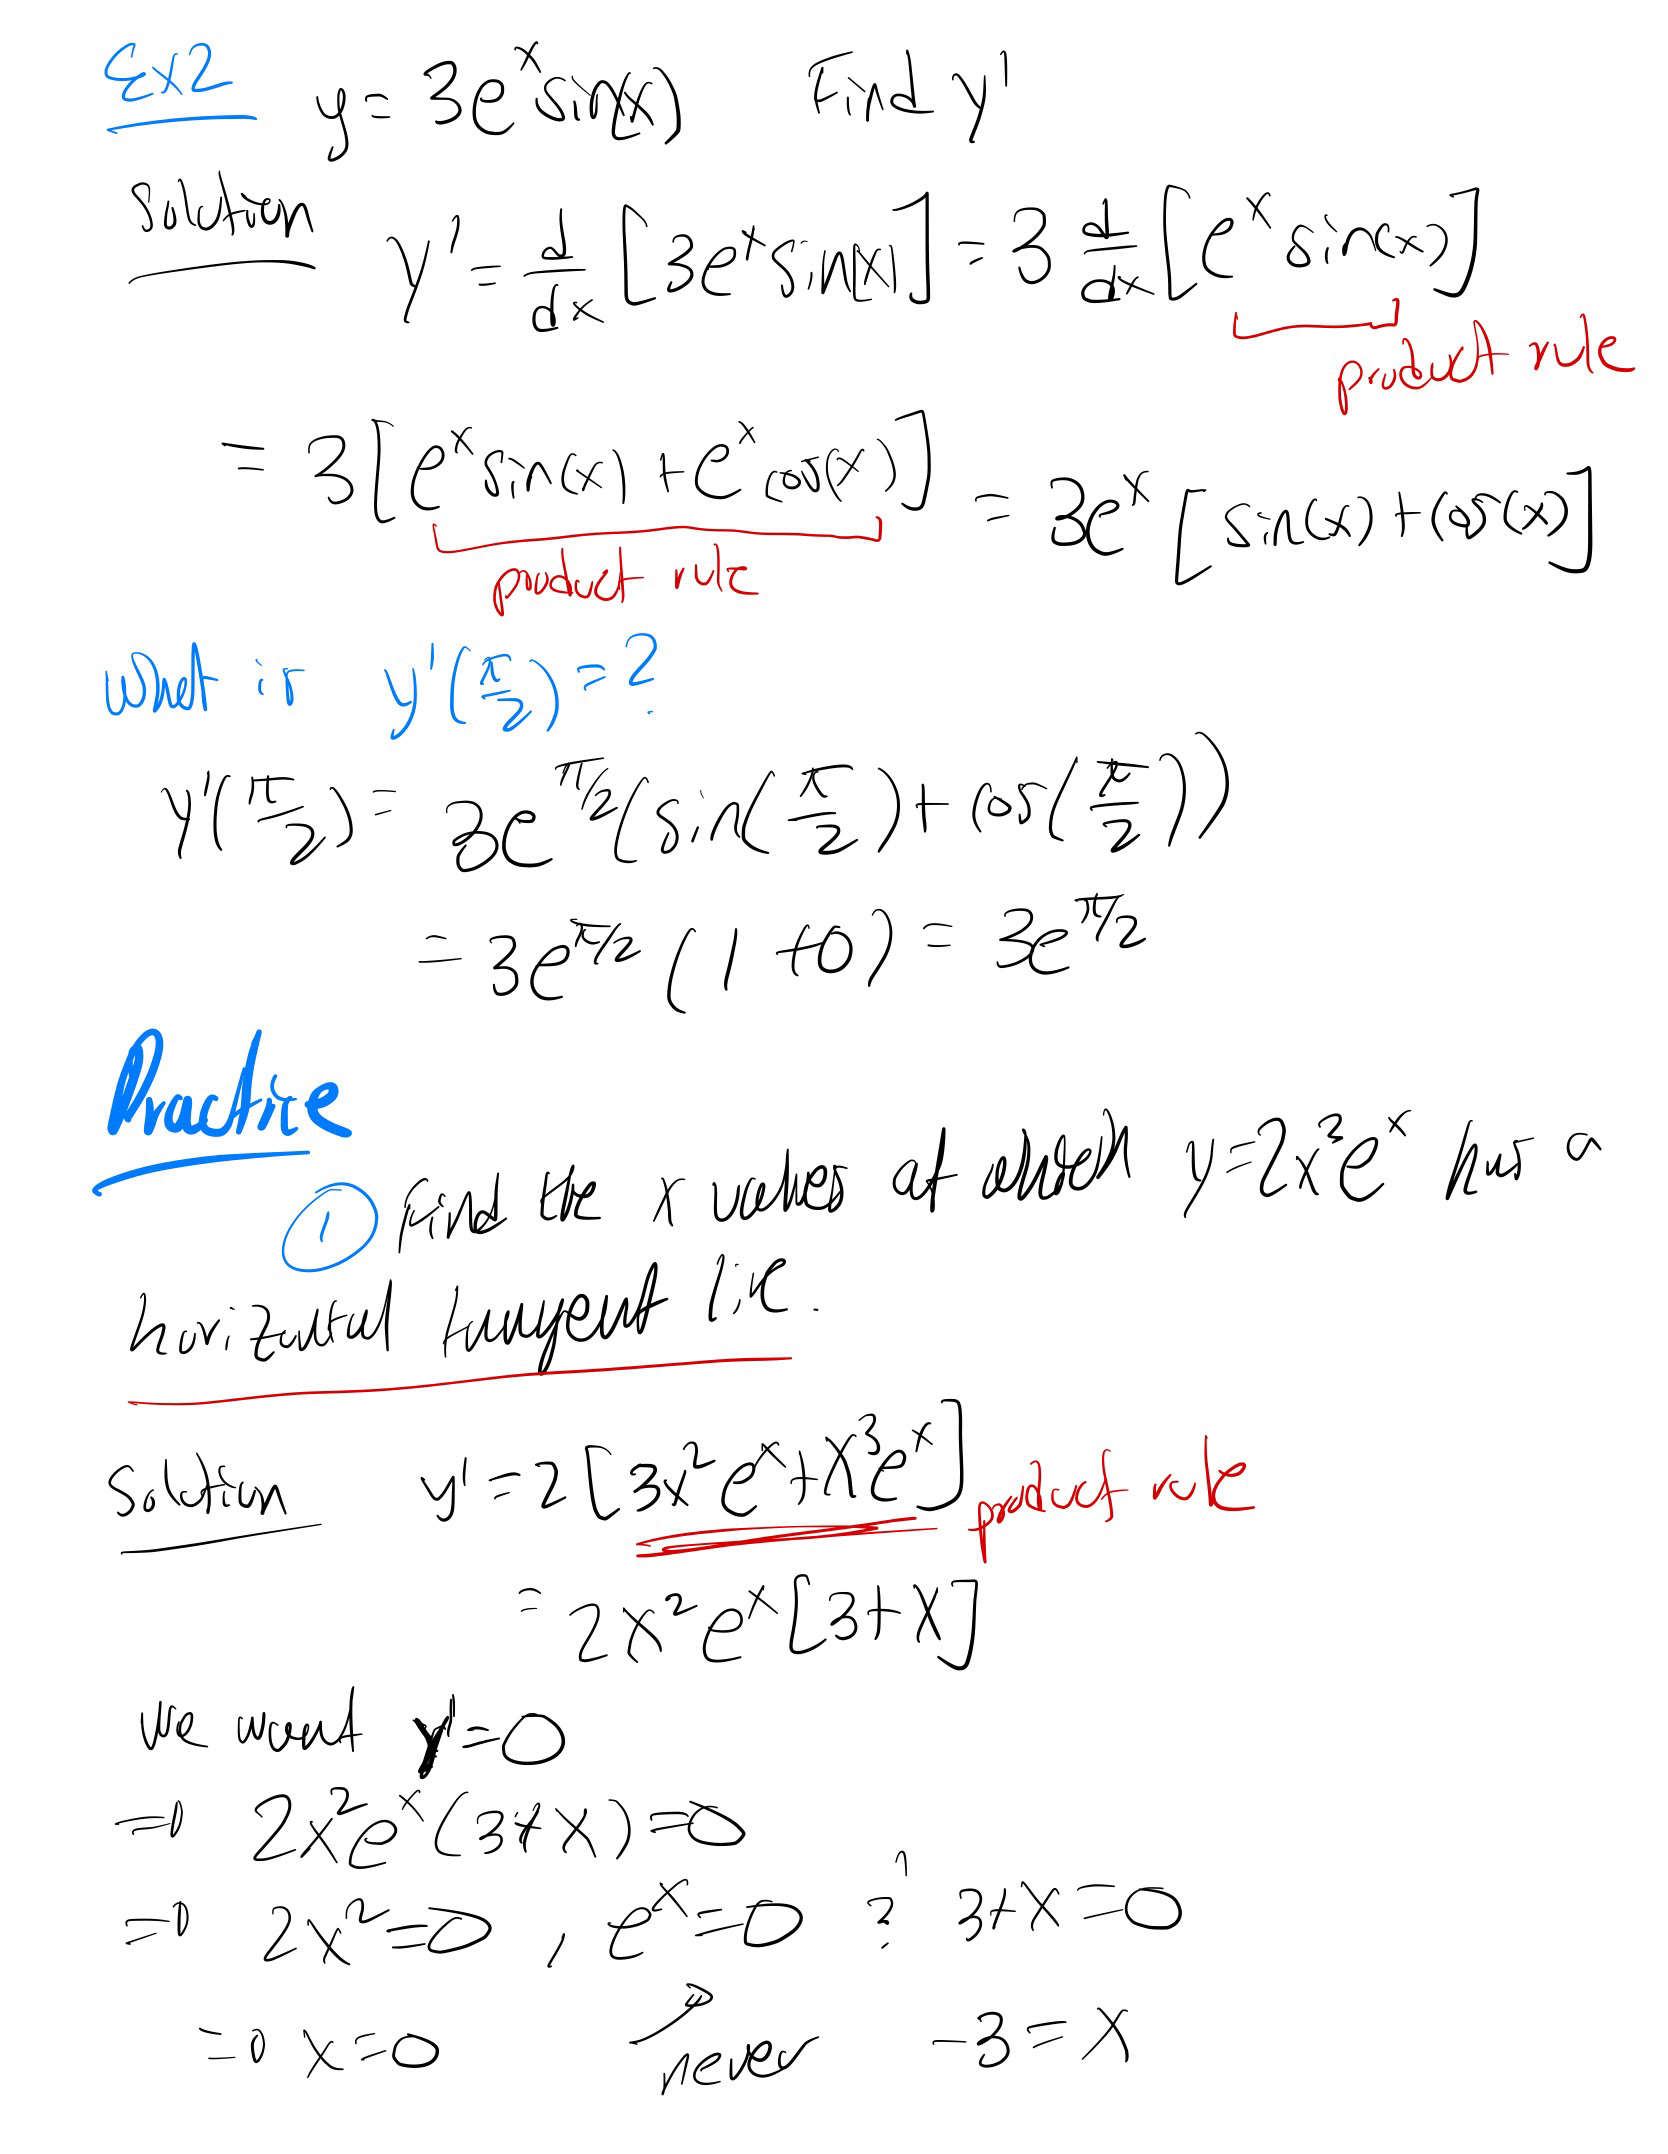 Ex2 y = 3e^x sin(x) Find y'
Solution y' = d/dx [3e^x sin(x)] = 3 d/dx [e^x sin(x)]
product rule
= 3[e^x sin(x) + e^x cos(x)] = 3e^x [sin(x) + cos(x)]
product rule
What is y'(π/2) = ?
y'(π/2) = 3e^π/2 (sin(π/2) + cos(π/2))
= 3e^π/2 (1 + 0) = 3e^π/2
Practice
① Find the x values at which y = 2x^3 e^x has a
horizontal tangent line.
Solution y' = 2[3x^2 e^x + x^3 e^x] product rule
= 2x^2 e^x [3 + x]
We want y' = 0
⇒ 2x^2 e^x (3 + x) = 0
⇒ 2x^2 = 0 , e^x = 0 ? 3 + x = 0
⇒ x = 0 never -3 = x